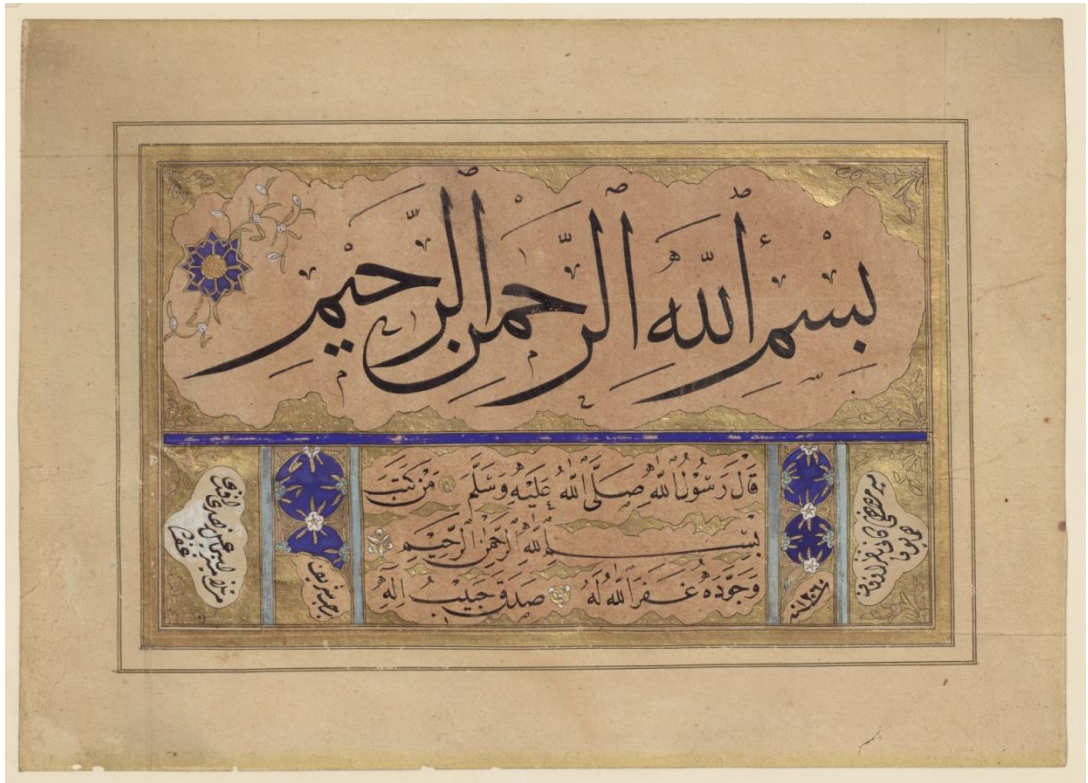 بِسْمِ اللّٰهِ الرَّحْمٰنِ الرَّحِيمِ
قَالَ رَسُولُ اللّٰهِ صَلَّى اللّٰهُ عَلَيْهِ وَسَلَّمَ مَنْ كَتَبَ
بِسْمِ اللّٰهِ الرَّحْمٰنِ الرَّحِيمِ
وَجَوَّدَهُ غَفَرَ اللّٰهُ لَهُ صَدَقَ حَبِيبُ اللّٰهِ